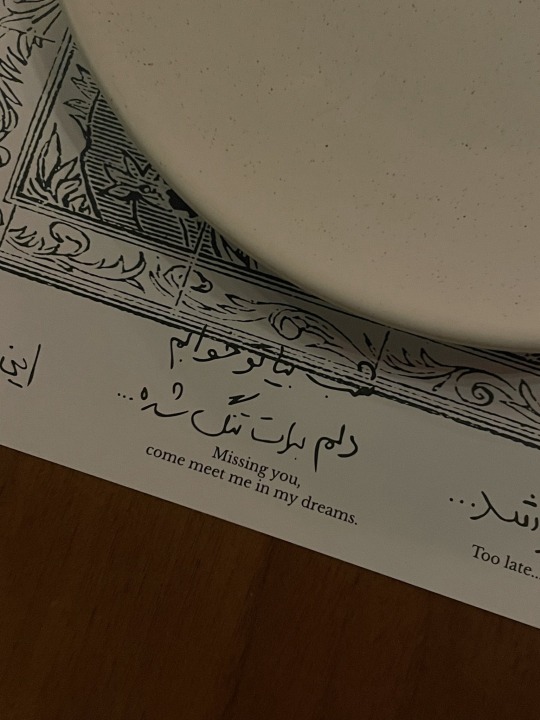 شب بیا تو خوابم
دلم برات تنگ شده...
Missing you,
come meet me in my dreams.
این
شد...
Too late...